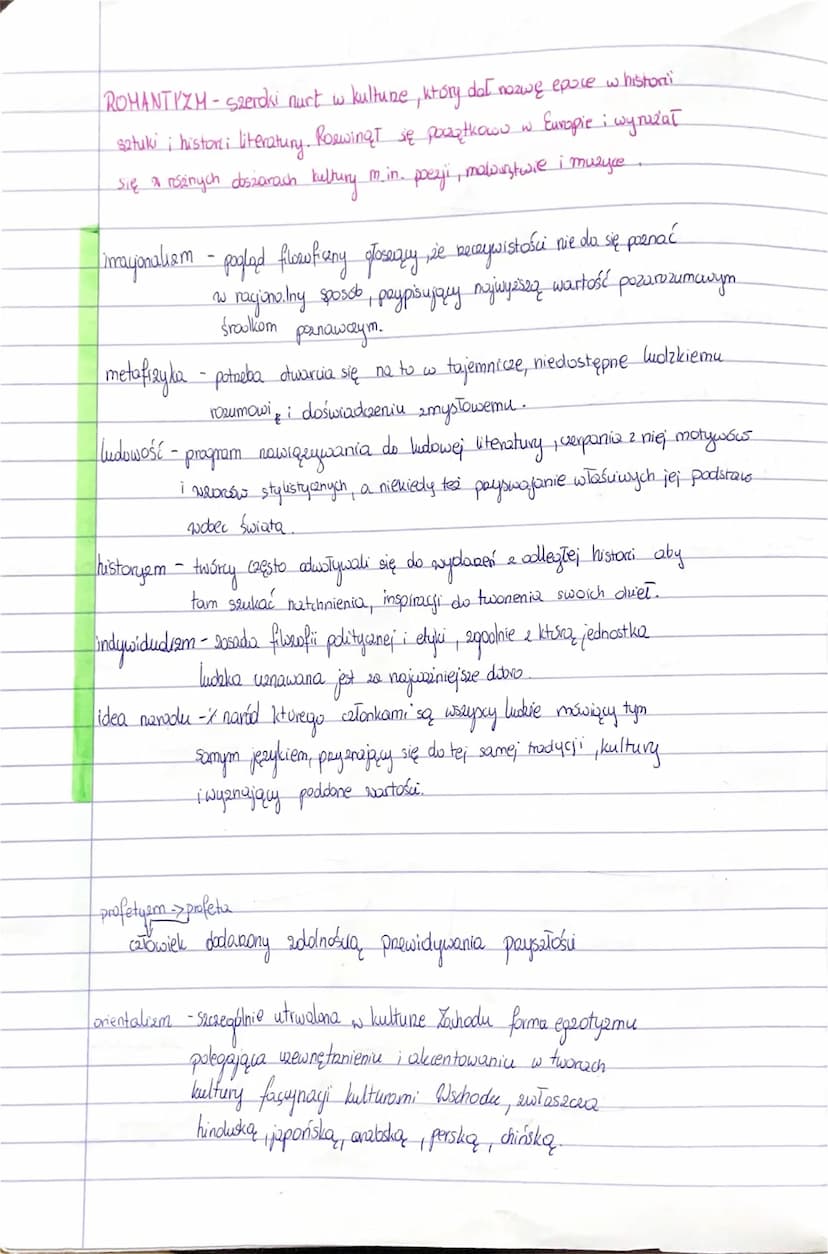 ROMANTYZM - szeroki nurt w kulturze, który dał nazwę epoce w historii
sztuki i historii literatury. Rozwinął się początkowo w Europie i wyrażał
się w różnych obszarach kultury m.in. poezji, malarstwie i muzyce.
irracjonalizm - pogląd filozoficzny głoszący, że rzeczywistości nie da się poznać
w racjonalny sposób, przypisujący najwyższą wartość pozarozumowym
środkom poznawczym.
metafizyka - potrzeba otwarcia się na to co tajemnicze, niedostępne ludzkiemu
rozumowi i doświadczeniu zmysłowemu.
ludowość - program nawiązywania do ludowej literatury, czerpania z niej motywów
i wzorów stylistycznych, a niekiedy też przyswajanie właściwych jej podstaw
wobec świata.
historyzm - twórcy często odwoływali się do wydarzeń z odległej historii aby
tam szukać natchnienia, inspiracji do tworzenia swoich dzieł.
indywidualizm - zasada filozofii politycznej i etyki, zgodnie z którą jednostka
ludzka uznawana jest za najważniejsze dobro.
idea narodu - naród którego członkami są wszyscy ludzie mówiący tym
samym językiem, przyznający się do tej samej tradycji, kultury
i wyznający podobne wartości.
profetyzm -> profeta
człowiek obdarzony zdolnością przewidywania przyszłości
orientalizm - szczególnie utrwalona w kulturze Zachodu forma egzotyzmu
polegająca uzewnętrznieniu i akcentowaniu w tworach
kultury fascynacji kulturami Wschodu, zwłaszcza
hinduską, japońską, arabską, perską, chińską.